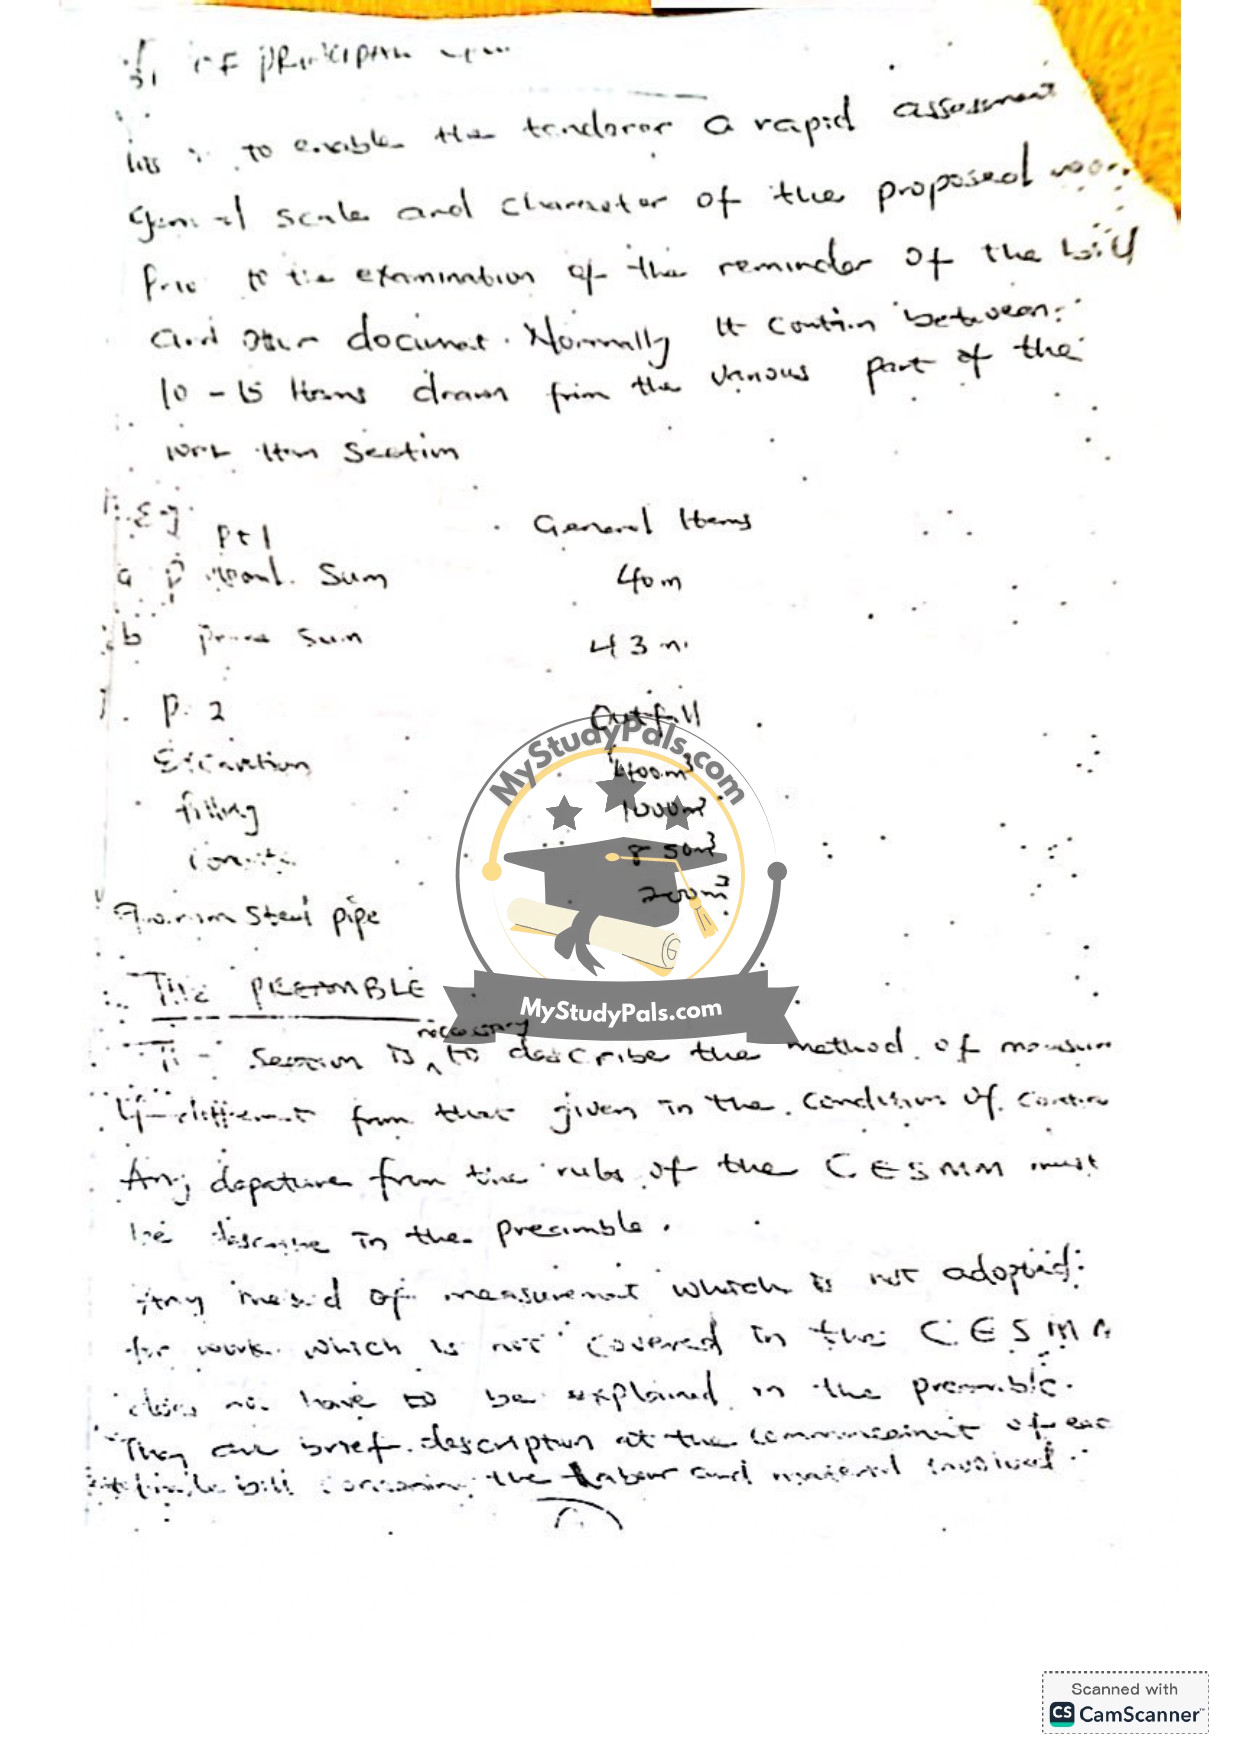 OF PRINCIPAL
to enable the tenderer a rapid assessment
scale and character of the proposed
to the examination of the reminder of the bill
and other document. Normally it contin between
10 - 15 Items drawn from the various part of the
work Item Section
E.g.
Pt 1 General Items
a Sum 40m
b prime Sum 43 m
P. 2 Outfill
Excavation 400m³
filling 1000m³
850m³
200m³
Steel pipe
MyStudyPals.com
MyStudyPals.com
The PREAMBLE
Section is necessary to describe the method of measure
If different from that given in the condition of
Any departure from the rules of the CESMM must
be describe in the preamble.
Any method of measurement which is not adopted
for work which is not covered in the CESMM
does not have to be explained in the preamble.
They are brief description at the commencement of
bill the labour and material involved.
Scanned with
CS CamScanner